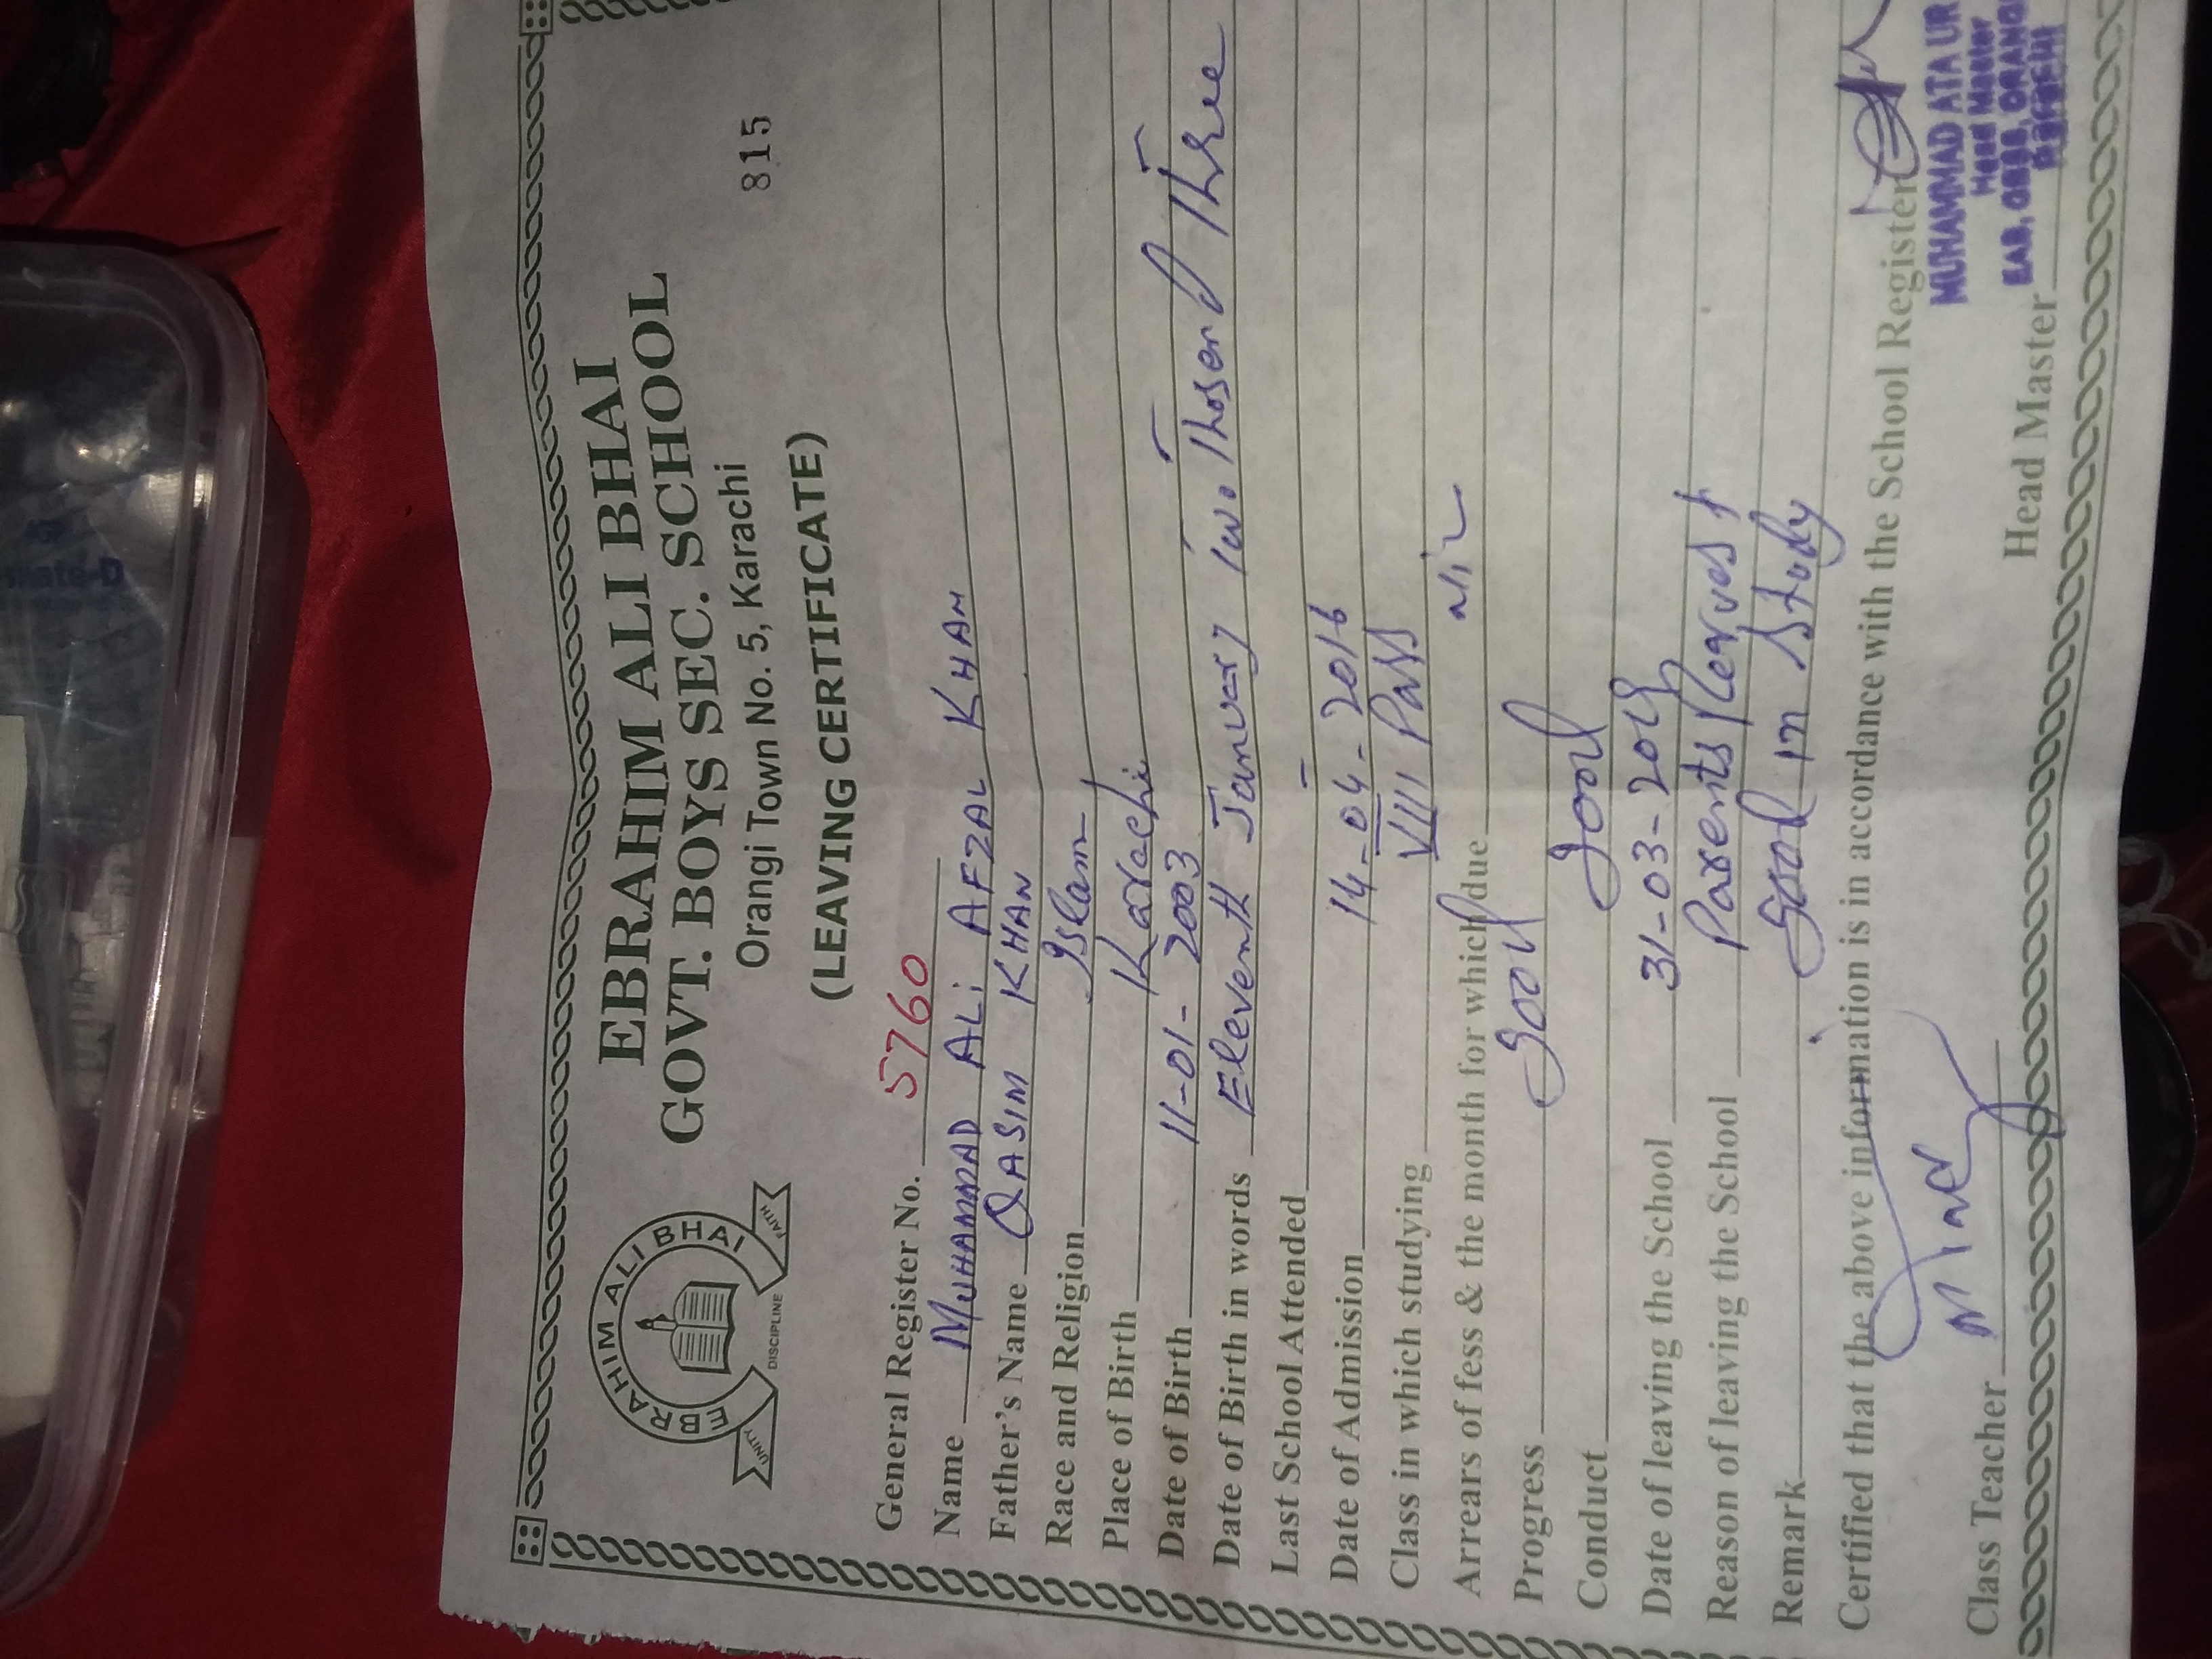 EBRAHIM ALI BHAI
GOVT. BOYS SEC. SCHOOL
Orangi Town No. 5, Karachi
815
(LEAVING CERTIFICATE)
EBRAHIM ALI BHAI
UNITY DISCIPLINE FAITH
General Register No. 5760
Name MUHAMMAD ALi AFZAL KHAN
Father's Name QASIM KHAN
Race and Religion Islam
Place of Birth Karachi
Date of Birth 11-01-2003
Date of Birth in words Eleventh January Two Thosend Three
Last School Attended -
Date of Admission 14-04-2016
Class in which studying VIII PASS
Arrears of fess & the month for which due Nil
Progress good
Conduct good
Date of leaving the School 31-03-
Reason of leaving the School Parents
Remark Good in study
Certified that the above information is in accordance with the School Register
MUHAMMAD ATA UR
Head Master
ORANGI
Class Teacher
Head Master